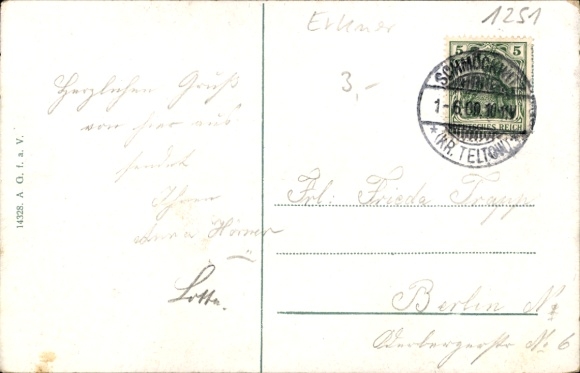 Erkner
1251
3,-
5 5
SCHMÖCKWITZ
1-6 09.10-11V
DEUTSCHES REICH
* (KR. TELTOW) *
Herzlichen Gruß
von hier aus
sendet
Ihnen
Anna Hörner
Lotte.
Frl: Frieda Trapp
Berlin No
Oderbergerstr No 6
14328. A O. f. a. V.